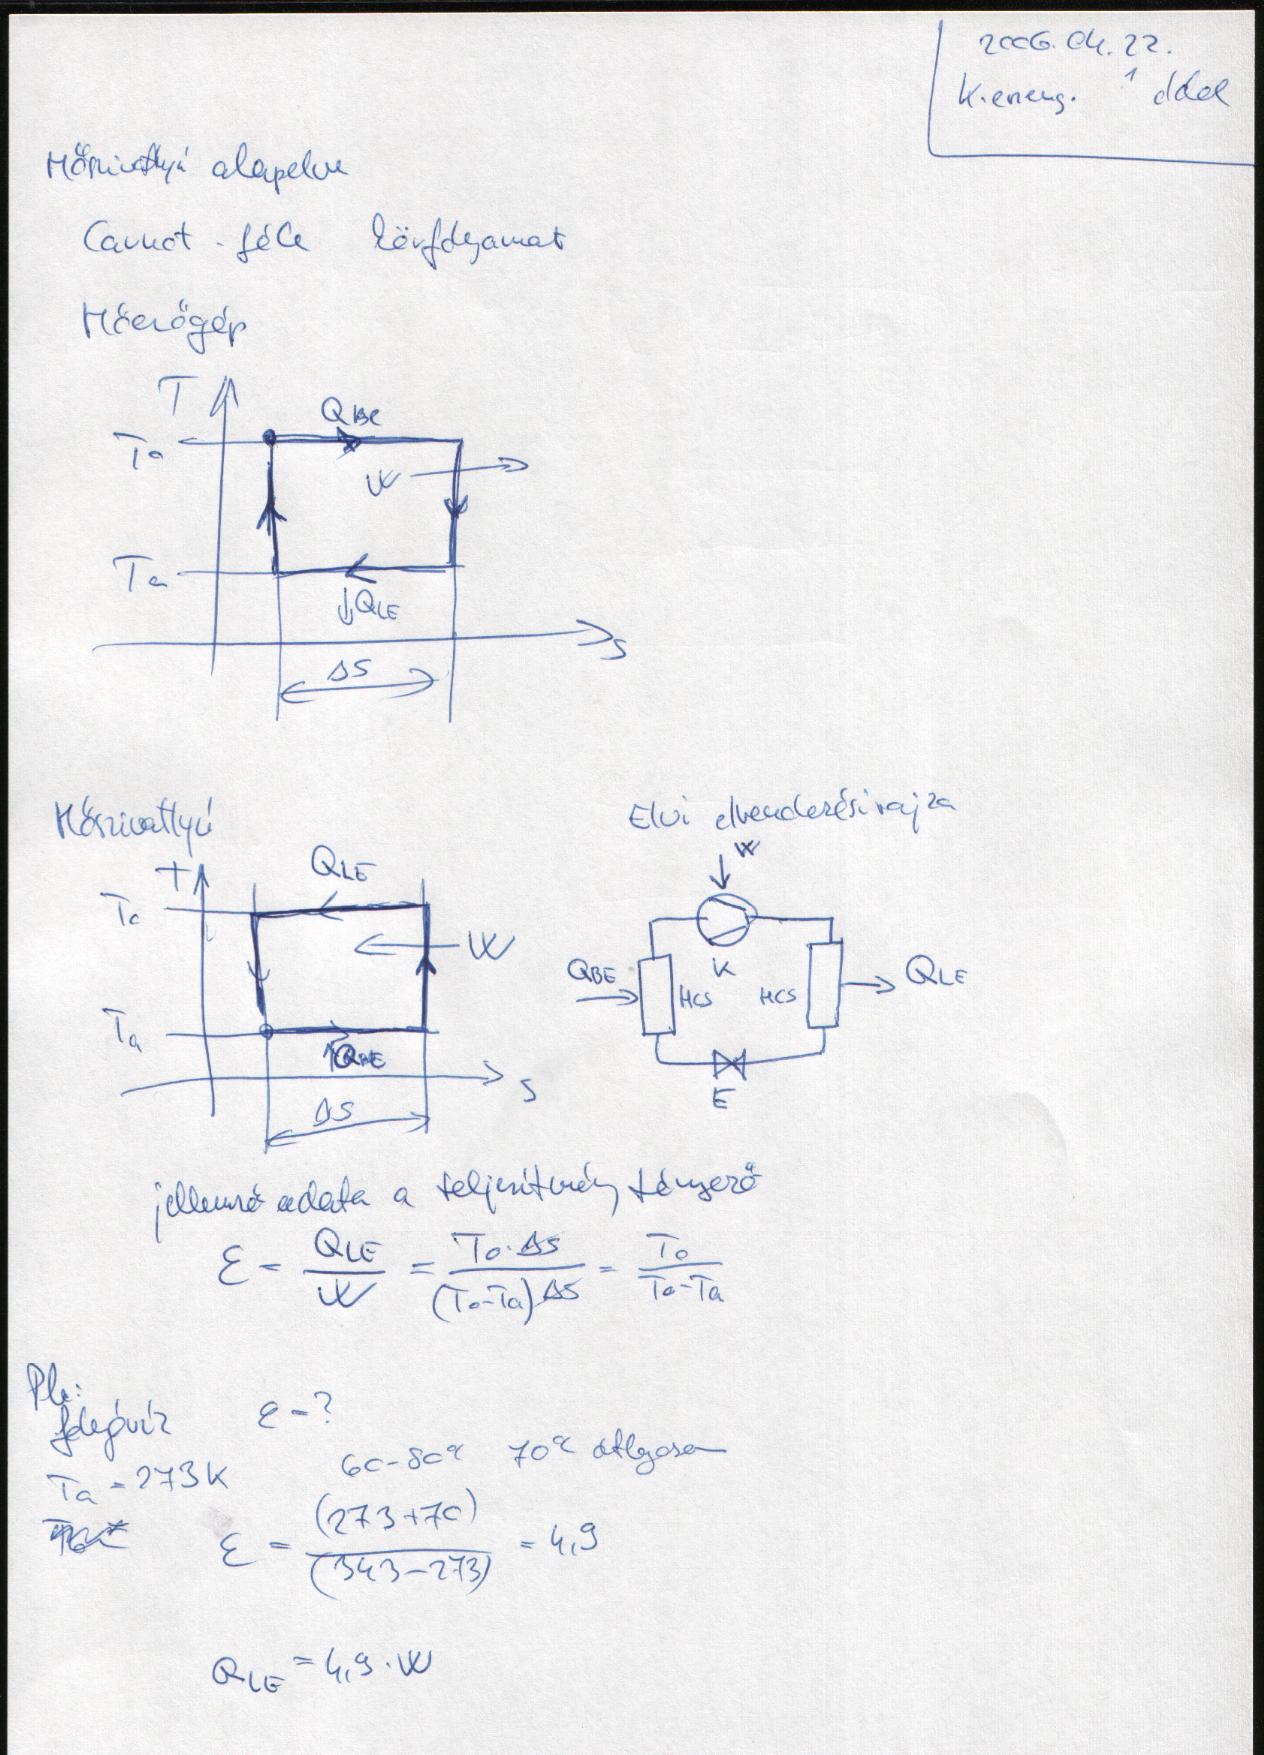 2006. 04. 22.
K. energ. 1 oldal
Hőszivattyú alapelve
Carnot-féle körfolyamat
Hőerőgép
T
QBE
To
W
Ta
QLE
S
ΔS
Hőszivattyú
Elvi elrendezési rajza
T
QLE
W
To
W
K
QBE
HCS
HCS
QLE
Ta
QBE
E
S
ΔS
jellemző adata a teljesítmény tényező
ε = QLE / W = To·ΔS / (To-Ta)ΔS = To / To-Ta
Pl.:
ε = ?
Ta = 273K
60-80° 70° átlagosan
ε = (273+70) / (343-273) = 4,9
QLE = 4,9·W